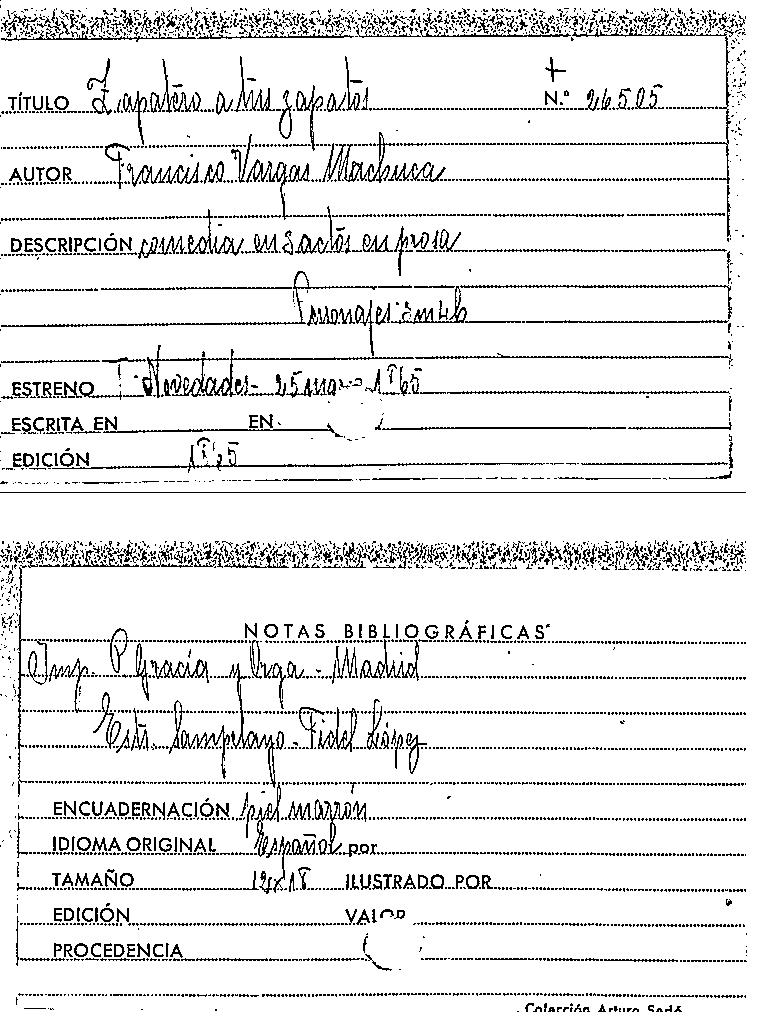 +
TÍTULO Zapatero a tus zapatos N.º 26505
AUTOR Francisco Vargas Machuca
DESCRIPCIÓN comedia en 3 actos en prosa
Personajes 3 m 4 h
ESTRENO T. Novedades - 25 1865
ESCRITA EN EN
EDICIÓN 1865
NOTAS BIBLIOGRÁFICAS
Imp. P. Gracia y Orga - Madrid
Estr. Sampelayo - Fidel López
ENCUADERNACIÓN piel marrón
IDIOMA ORIGINAL Español por
TAMAÑO 12x18 ILUSTRADO POR
EDICIÓN VALOR
PROCEDENCIA
Colección Arturo Sedó